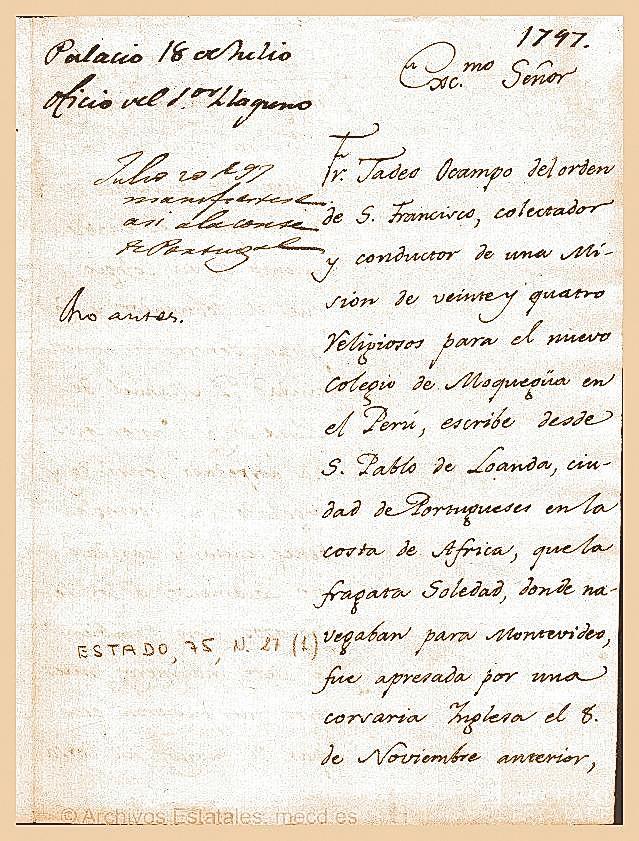 1797.
Palacio 18 de Julio
Oficio del S.or Llaguno
Exc.mo Señor
Julio 20 de 97
manifiestese
asi a la corte
de Portugal
No antes.
Fr. Tadeo Ocampo del orden
de S. Francisco, colectador
y conductor de una Mi-
sion de veinte y quatro
Religiosos para el nuevo
Colegio de Moquegüa en
el Perú, escribe desde
S. Pablo de Loanda, ciu-
dad de Portugueses en la
costa de Africa, que la
fragata Soledad, donde na-
vegaban para Montevideo,
fue apresada por una
corsaria Inglesa el 8.
de Noviembre anterior,
ESTADO, 75, N. 27 (1)
© Archivos Estatales, mecd.es